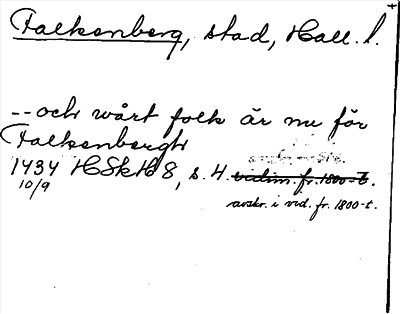 Falkenberg, stad, Hall. l.
-- och wårt folk är nu för
Falkenbergh
1434 HSkH 8, s. 4. vidim. fr. 1800-t.
10/9
avskr. i vid. fr. 1800-t.